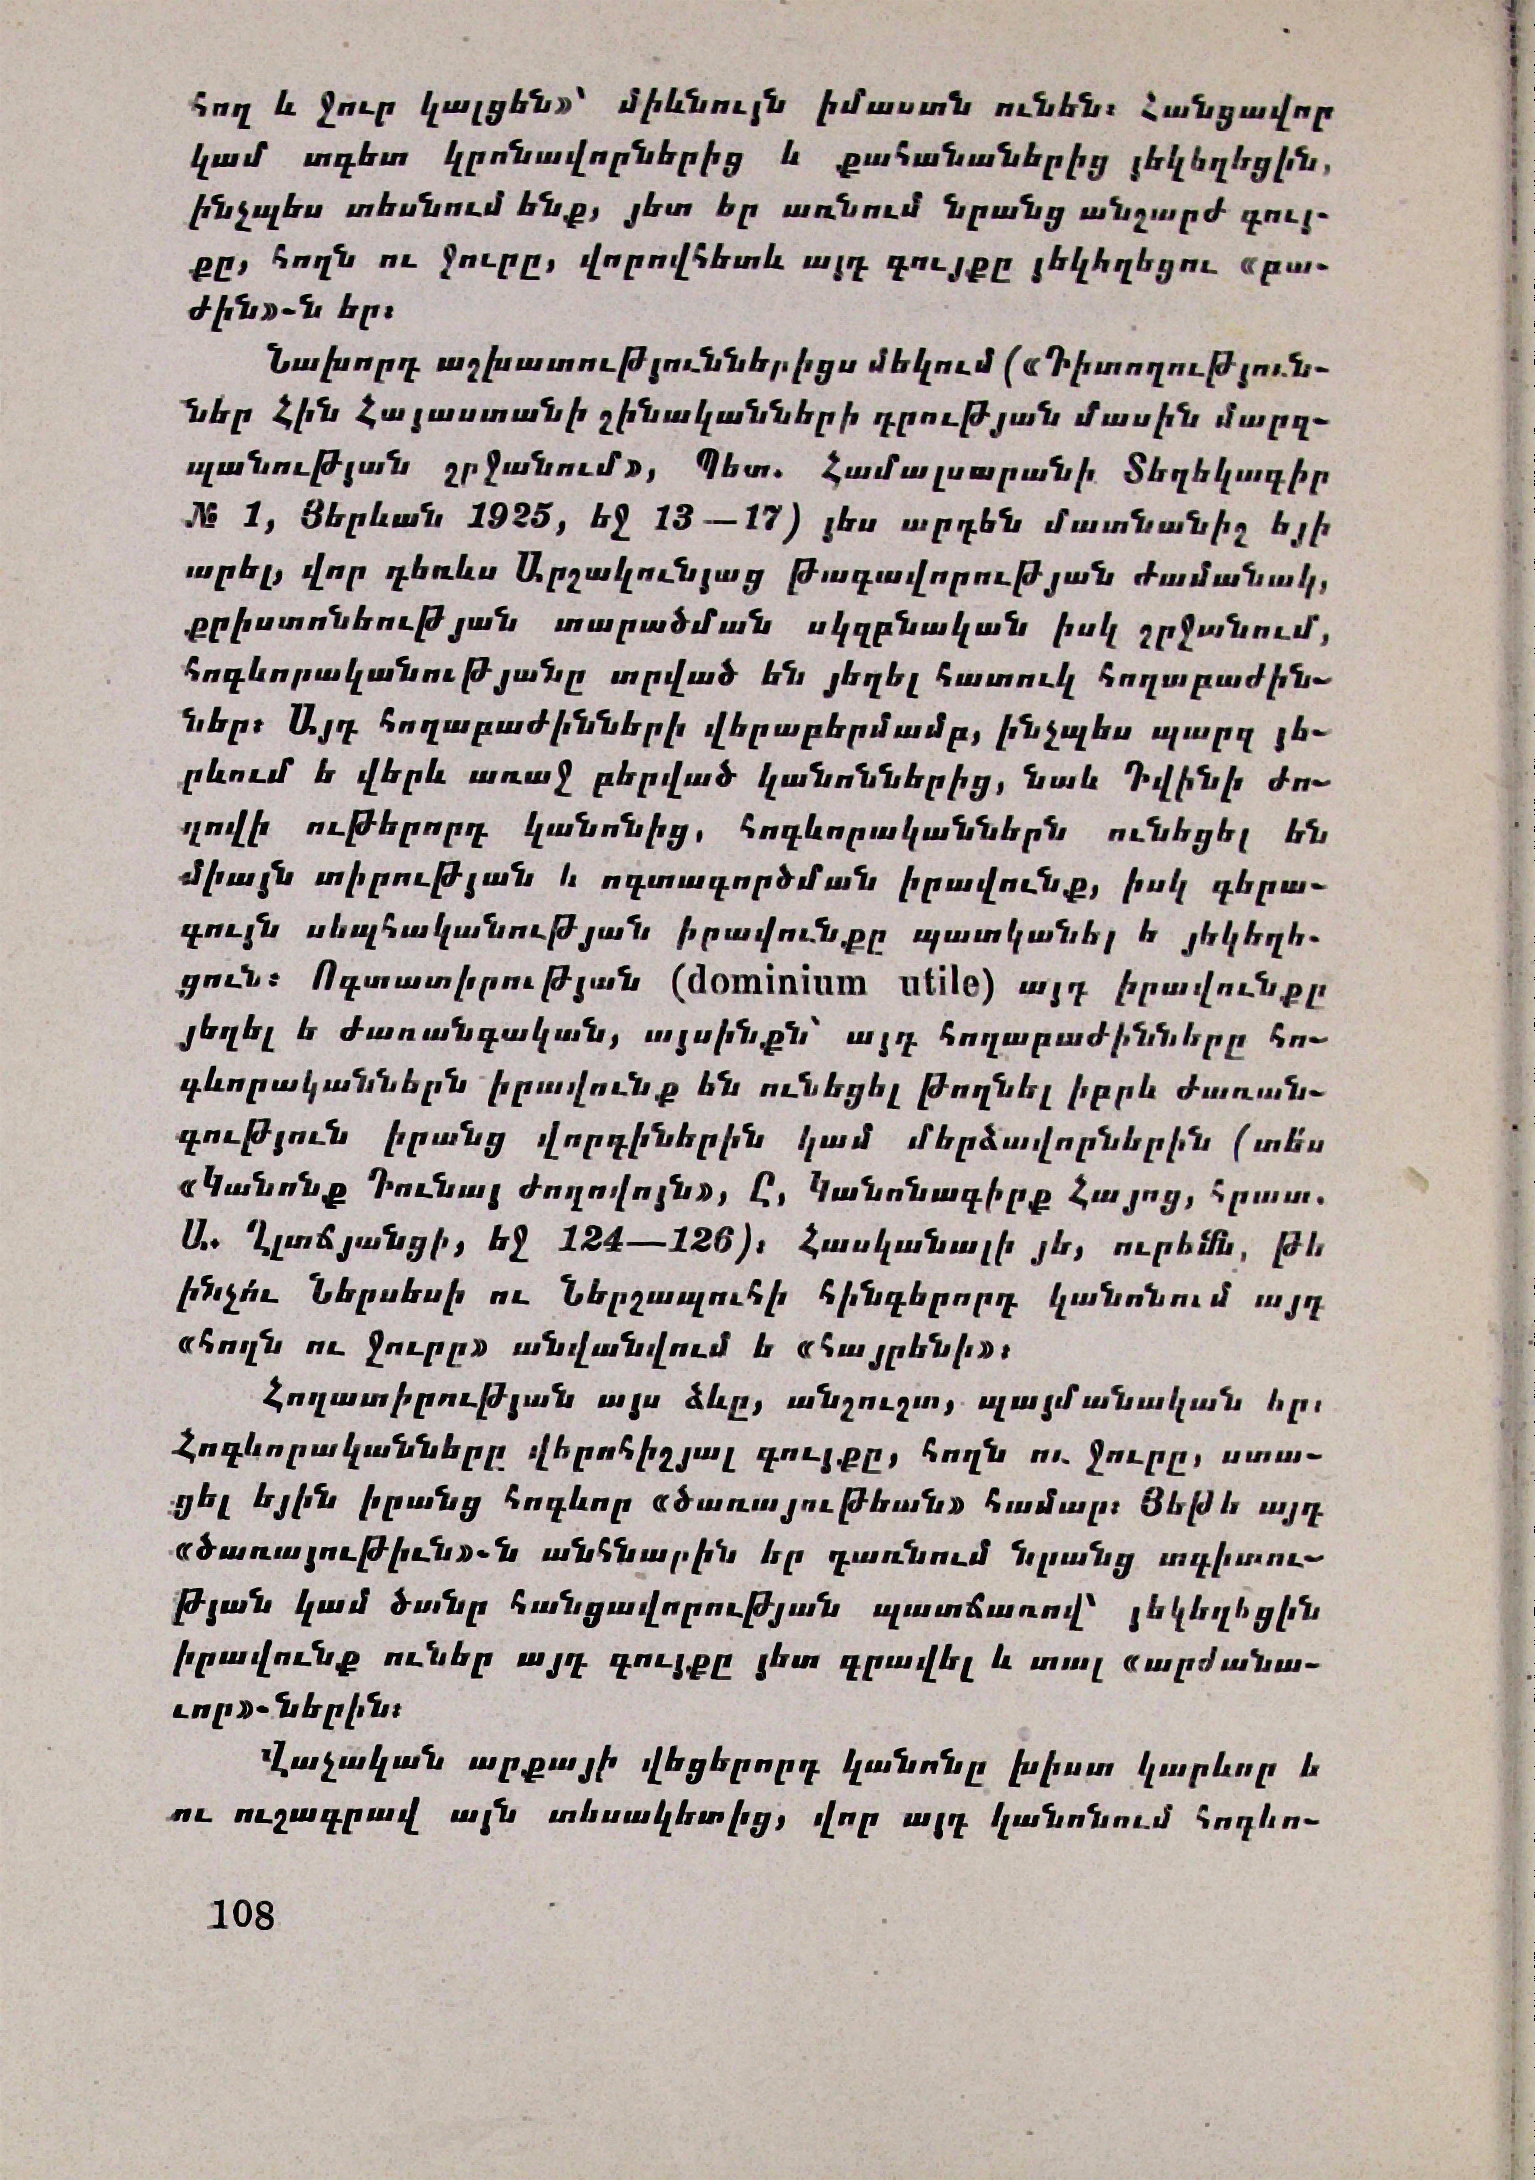 հող և ջուր կալցեն»՝ միևնույն իմաստն ունեն։ Հանցավոր
կամ տգետ կրոնավորներից և քահանաներից յեկեղեցին,
ինչպես տեսնում ենք, յետ եր առնում նրանց անշարժ գույ-
քը, հողն ու ջուրը, վորովհետև այդ գույքը յեկեղեցու «բա-
ժին»-ն եր։
Նախորդ աշխատություններիցս մեկում («Դիտողություն-
ներ Հին Հայաստանի շինականների դրության մասին մարզ-
պանության շրջանում», Պետ. Համալսարանի Տեղեկագիր
№ 1, Յերևան 1925, եջ 13—17) յես արդեն մատնանիշ եյի
արել, վոր դեռևս Արշակունյաց թագավորության ժամանակ,
քրիստոնեության տարածման սկզբնական իսկ շրջանում,
հոգևորականությանը տրված են յեղել հատուկ հողաբաժին-
ներ։ Այդ հողաբաժինների վերաբերմամբ, ինչպես պարզ յե-
րևում ե վերև առաջ բերված կանոններից, նաև Դվինի ժո-
ղովի ութերորդ կանոնից, հոգևորականներն ունեցել են
միայն տիրության և ոգտագործման իրավունք, իսկ գերա-
գույն սեպհականության իրավունքը պատկանել ե յեկեղե-
ցուն։ Ոգտատիրության (dominium utile) այդ իրավունքը
յեղել ե ժառանգական, այսինքն՝ այդ հողաբաժինները հո-
գևորականներն իրավունք են ունեցել թողնել իբրև ժառան-
գություն իրանց վորդիներին կամ մերձավորներին (տե՛ս
«Կանոնք Դունայ ժողովոյն», Ը, Կանոնագիրք Հայոց, հրատ.
Ա. Ղլտճյանցի, եջ 124—126)։ Հասկանալի յե, ուրեմն, թե
ինչու՛ Ներսեսի ու Ներշապուհի հինգերորդ կանոնում այդ
«հողն ու ջուրը» անվանվում ե «հայրենի»։
Հողատիրության այս ձևը, անշուշտ, պայմանական եր։
Հոգևորականները վերոհիշյալ գույքը, հողն ու ջուրը, ստա-
ցել եյին իրանց հոգևոր «ծառայութեան» համար։ Յեթե այդ
«ծառայութիւն»-ն անհնարին եր դառնում նրանց տգիտու-
թյան կամ ծանր հանցավորության պատճառով՝ յեկեղեցին
իրավունք ուներ այդ գույքը յետ գրավել և տալ «արժանա-
ւոր»-ներին։
Վաչական արքայի վեցերորդ կանոնը խիստ կարևոր ե
ու ուշագրավ այն տեսակետից, վոր այդ կանոնում հոգևո-
108